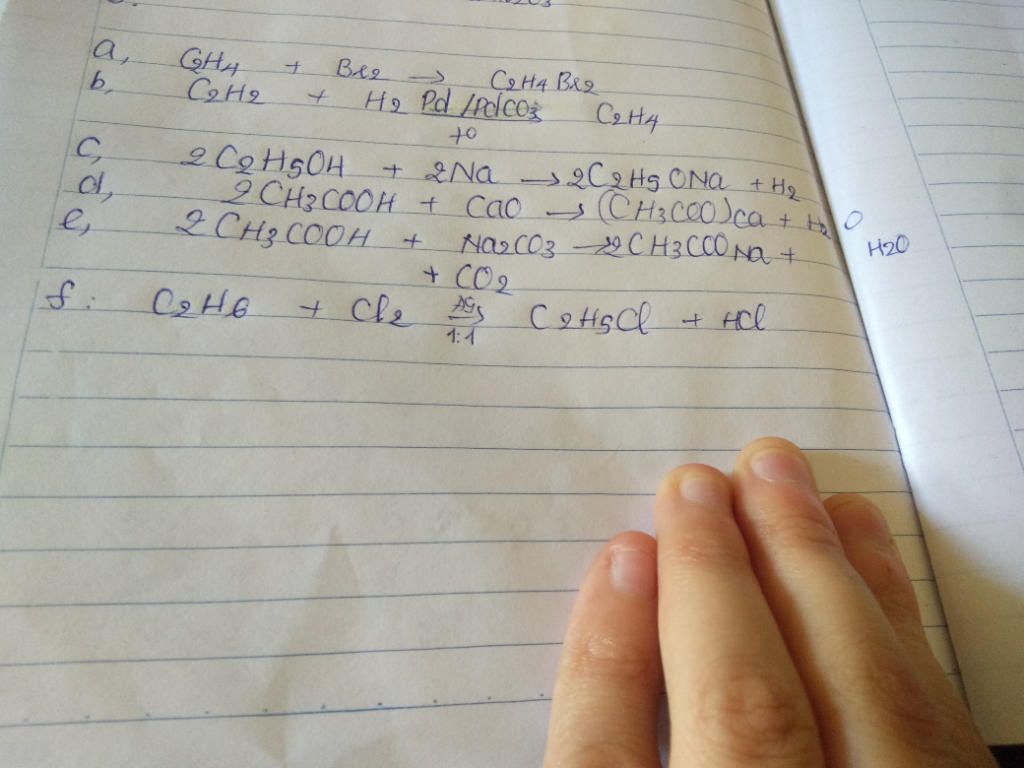 a, C2H4 + Br2 → C2H4Br2
b, C2H2 + H2 Pd/PdCO3 C2H4
to
c, 2C2H5OH + 2Na → 2C2H5ONa + H2
d, 2CH3COOH + CaO → (CH3COO)ca + H2O
e, 2CH3COOH + Na2CO3 → 2CH3COONa + H2O
+ CO2
f: C2H6 + Cl2 → C2H5Cl + HCl
1:1